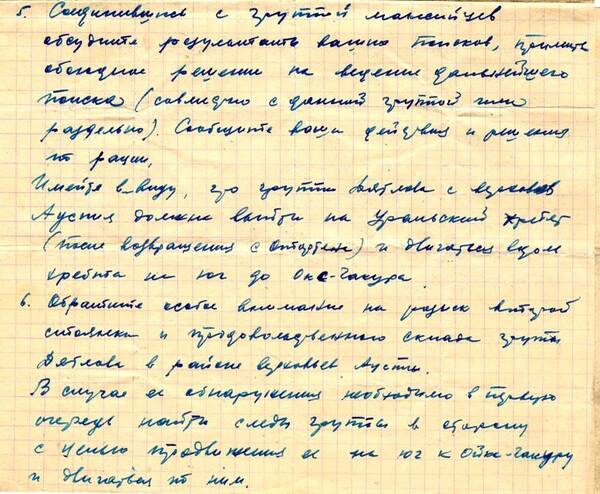 5. Соединившись с группой мансийцев
обсудите результаты ваших поисков, примите
обоюдное решение на ведение дальнейшего
поиска (совместно с данной группой или
раздельно). Сообщите ваши действия и решения
по рации.
Имейте в виду, что группа Дятлова с верховьев
Ауспия должна выйти на Уральский хребет
(после возвращения с Отортена) и двигаться вдоль
хребта на юг до Ойко-Чакура.
6. Обратите особое внимание на розыск второй
стоянки и продовольственного склада группы
Дятлова в районе верховьев Ауспии.
В случае ее обнаружения необходимо в первую
очередь найти следы группы в сторону
с целью продвижения ее на юг к Ойка-Чакуру
и двигаться по ним.